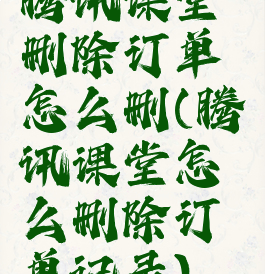 腾讯课堂
删除订单
怎么删(腾
讯课堂怎
么删除订
单记录)